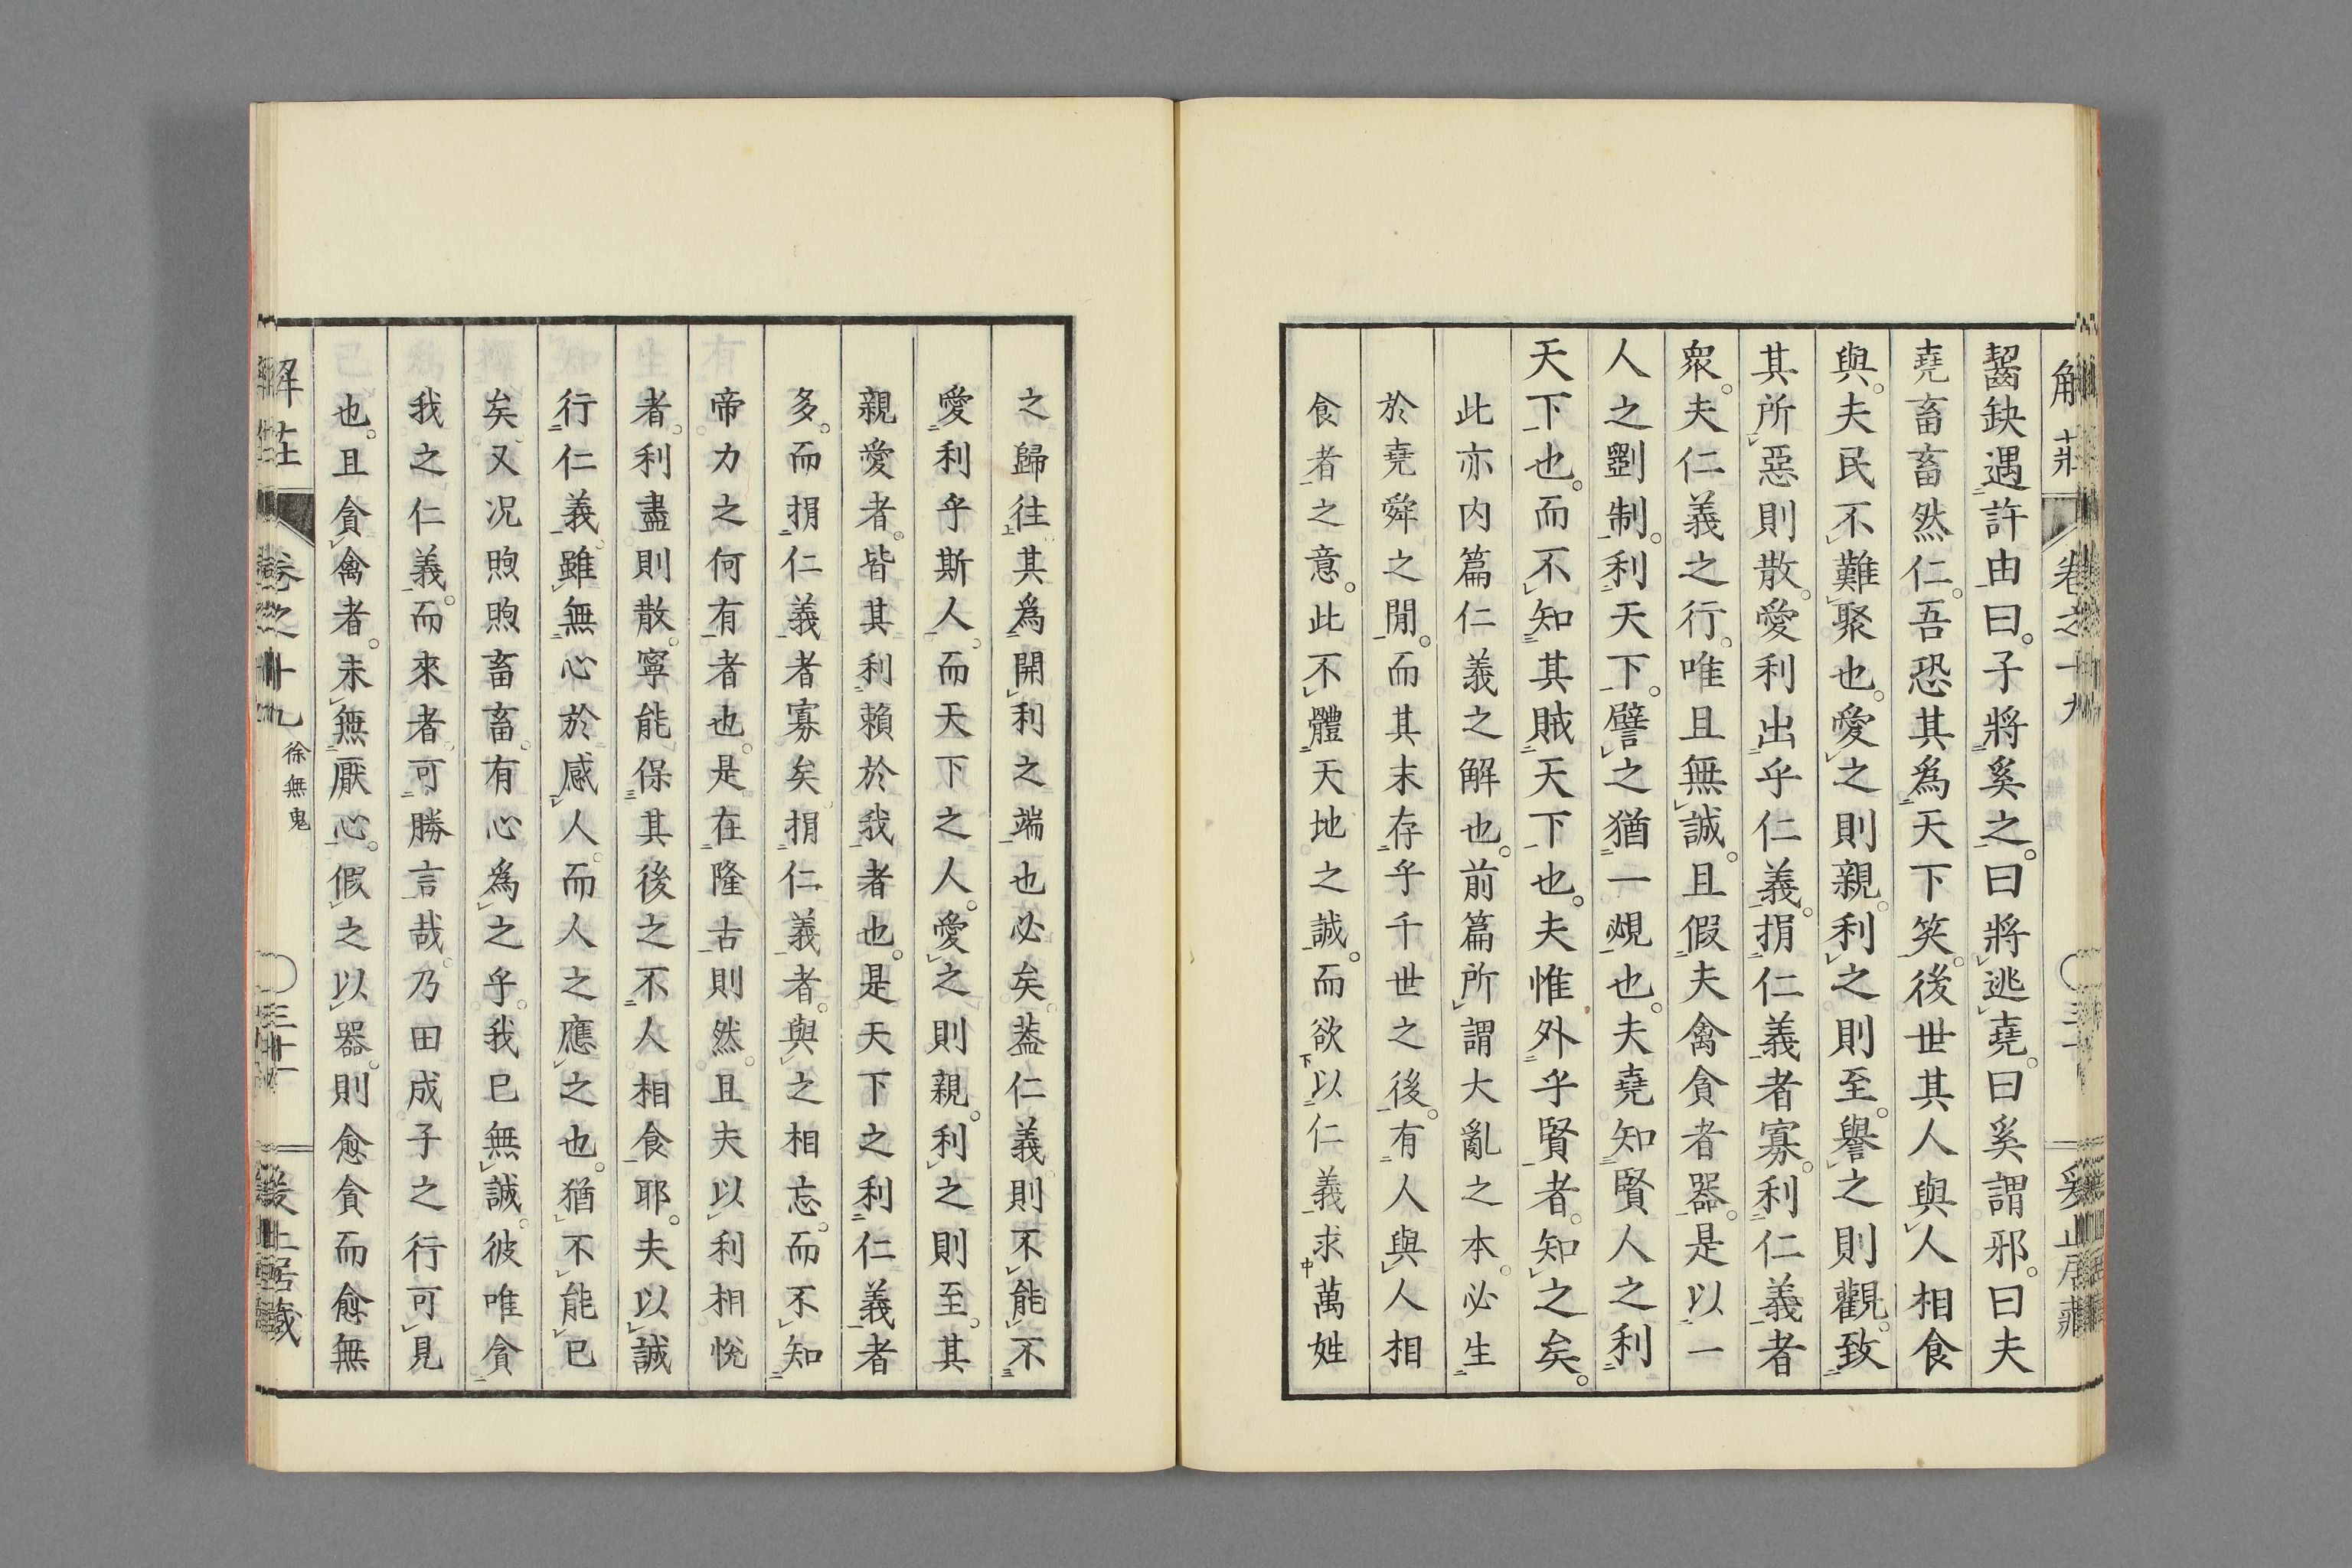 齧缺遇許由曰。子將奚之。曰將逃堯。曰奚謂邪。曰夫
堯畜畜然仁。吾恐其爲天下笑。後世其人與人相食
與。夫民不難聚也。愛之則親。利之則至。譽之則觀。致
其所惡則散。愛利出乎仁義。捐仁義者寡。利仁義者
衆。夫仁義之行。唯且無誠。且假夫禽貪者器。是以一
人之劉制。利天下。譬之猶一覕也。夫堯知賢人之利
天下也。而不知其賊天下也。夫惟外乎賢者。知之矣。
此亦内篇仁義之解也。前篇所謂大亂之本。必生
於堯舜之閒。而其末存乎千世之後。有人與人相
食者之意。此不體天地之誠。而欲以仁義求萬姓
之歸往其爲開利之端也必矣。葢仁義則不能不
愛利乎斯人。而天下之人。愛之則親。利之則至。其
親愛者。皆其利賴於我者也。是天下之利仁義者
多。而捐仁義者寡矣。捐仁義者。與之相忘。而不知
帝力之何有者也。是在隆古則然。且夫以利相悅
者。利盡則散。寧能保其後之不人相食耶。夫以誠
行仁義。雖無心於感人。而人之應之也。猶不能已
矣又况煦煦畜畜。有心爲之乎。我已無誠。彼唯貪
我之仁義。而來者。可勝言哉。乃田成子之行可見
也。且貪禽者。未無厭心。假之以器。則愈貪而愈無
卷之十九
徐無鬼
三十一